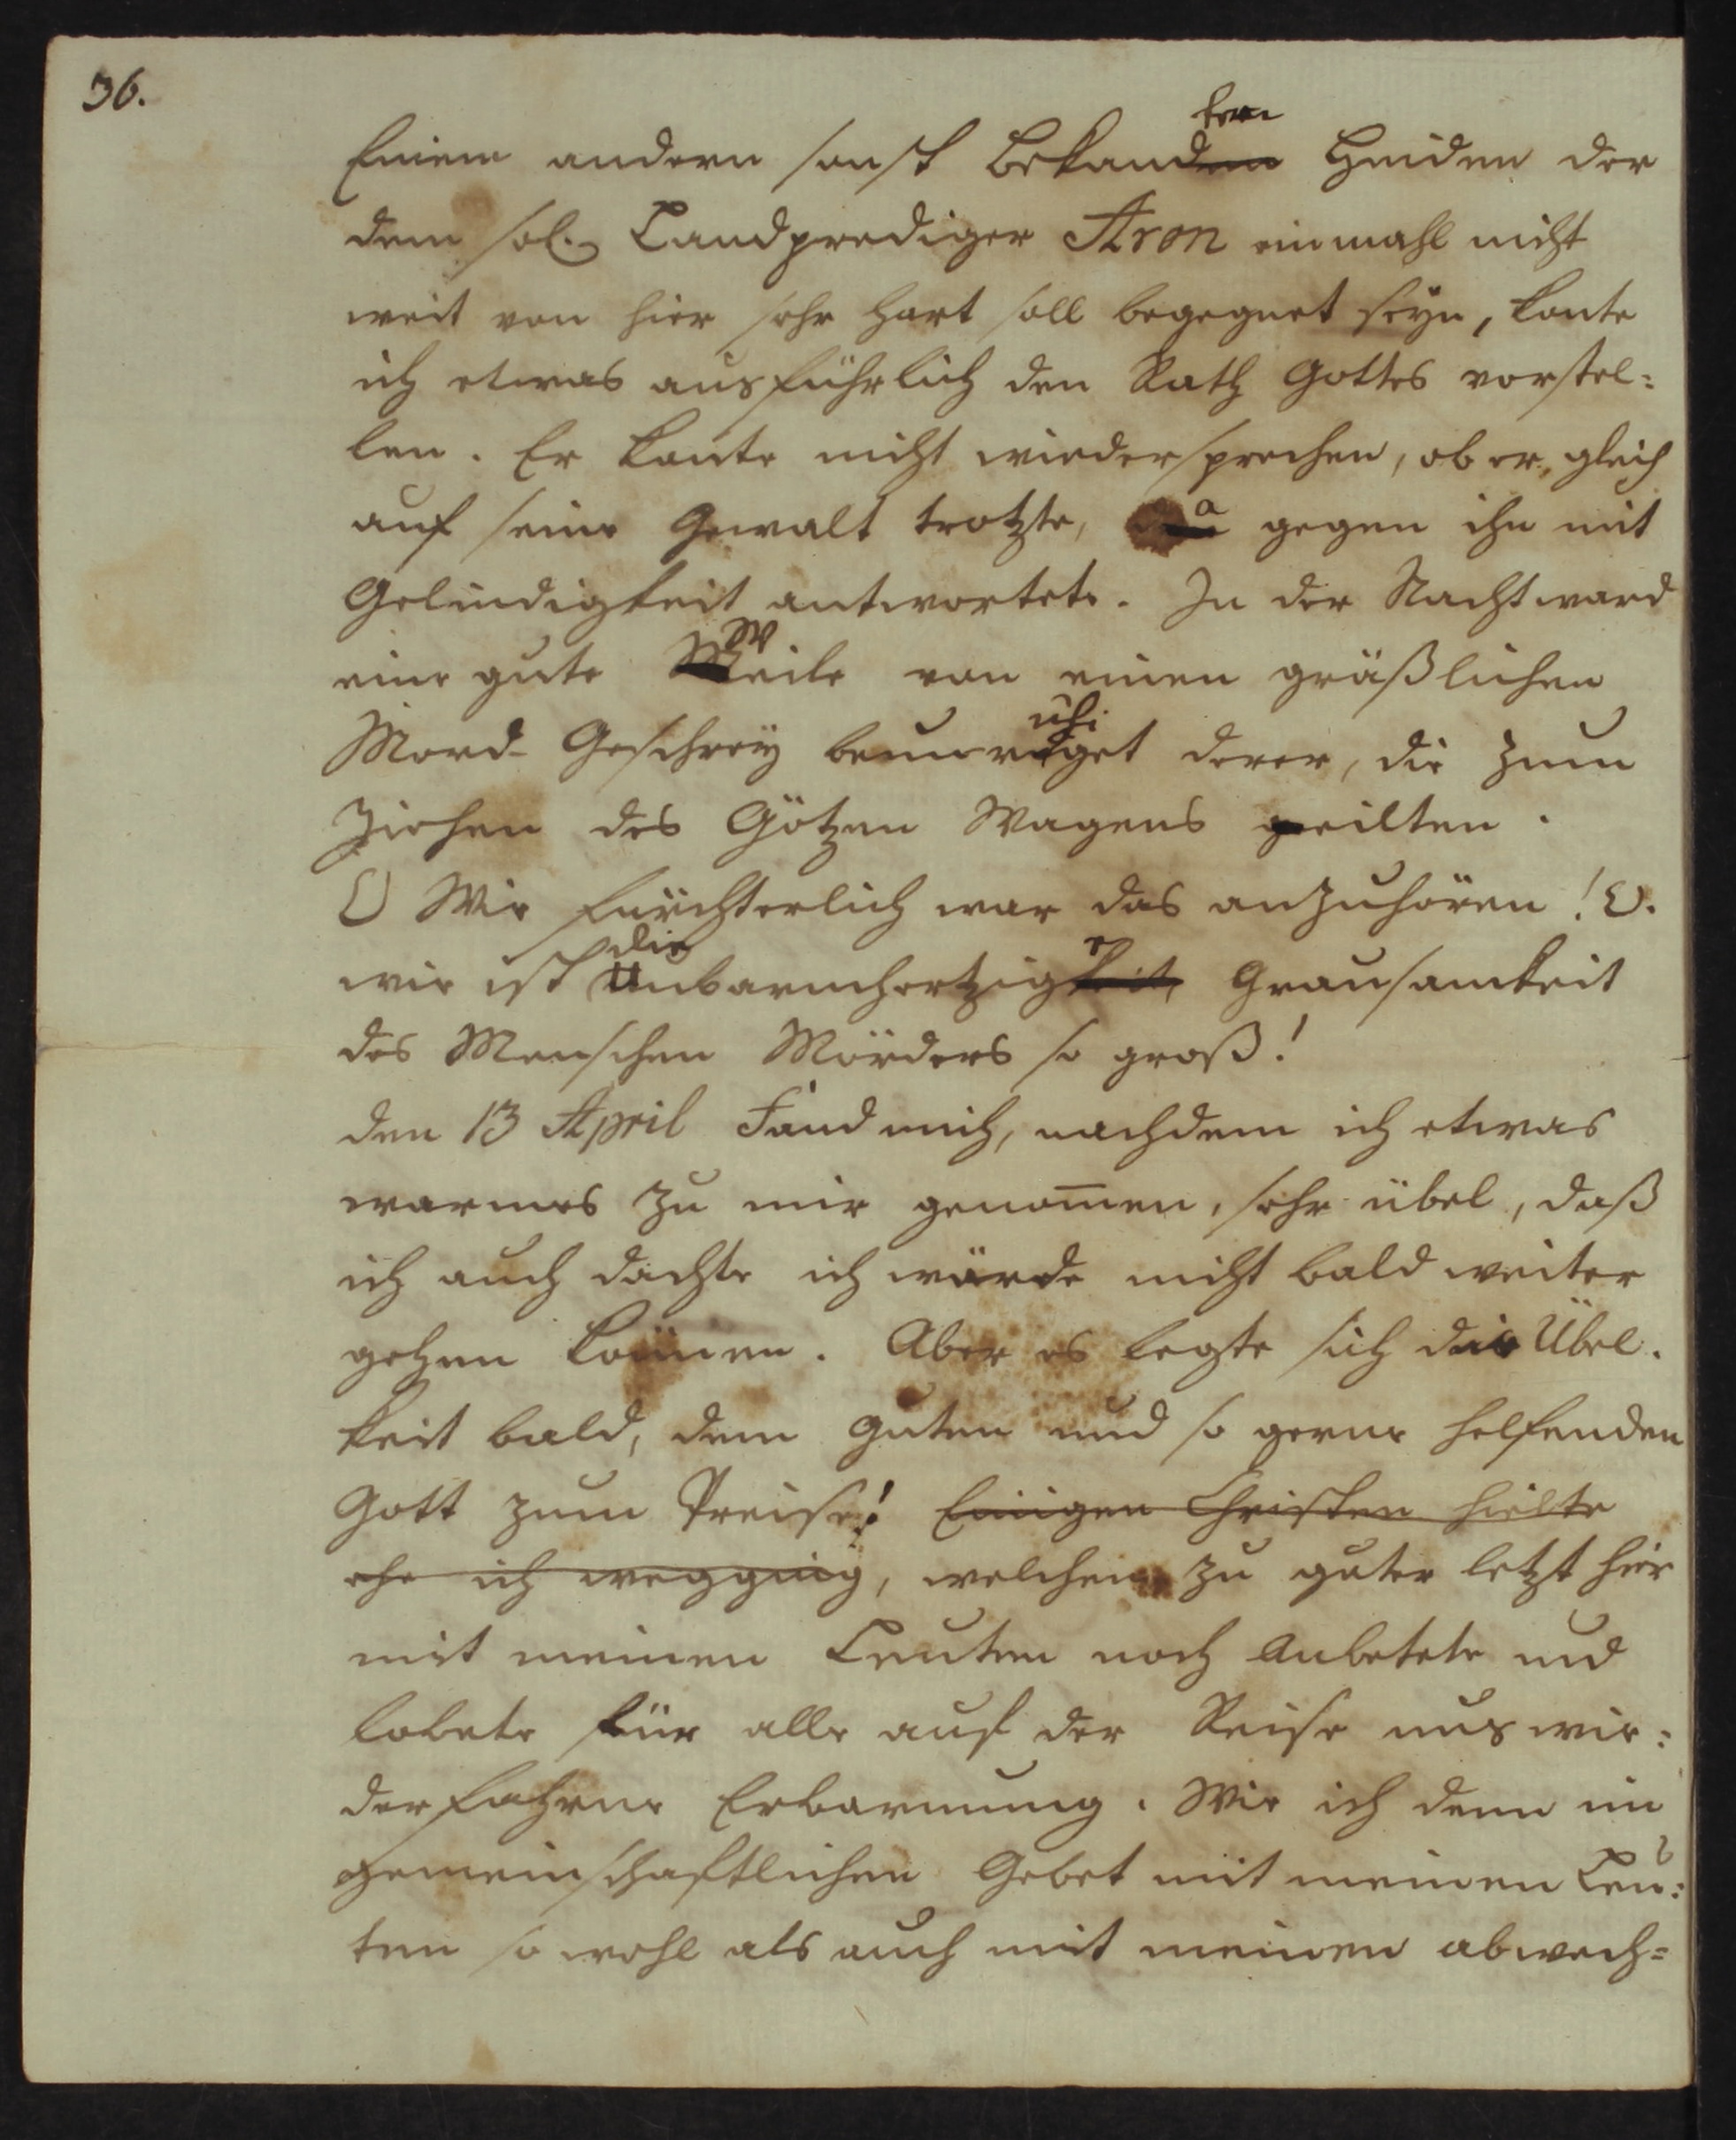 36.
Einem andern sonst bekandten Heiden der
dem sel. Landprediger Aron einmahl nicht
weit von hier sehr hart soll begegnet seyn, konte
ich etwas ausführlich den Rath Gottes vorstel:
len. Er konte nicht wiedersprechen, ob er gleich
auf seine Gewalt trotzte, da gegen ihn mit
Gelindigkeit antwortete. In der Nacht ward
eine gute Weile von einen gräßlichen
Mord-Geschrey beunruhiget derer, die zum
Ziehen des Götzen Wagens eilten.
O Wie fürchterlich war das anzuhören! O.
wie ist die Unbarmhertzige Grausamkeit
des Menschen Mörders so groß!
den 13 April Fand mich, nachdem ich etwas
warmes zu mir genom̄en, sehr übel, daß
ich auch dachte ich würde nicht bald weiter
gehen können. Aber es legte sich die Übel.
keit bald, dem guten und so gerne helfenden
Gott zum Preise! Einigen Christen hielte
ehe ich wegging, welchen zu guter letzt hier
mit meinen Leuten noch Anbetete und
lobete für alle auf der Reise uns wie:
derfahrne Erbarmung. Wie ich denn im
gemeinschaftlichen Gebet mit meinen Leu:
ten so wohl als auch mit meinen abwech=